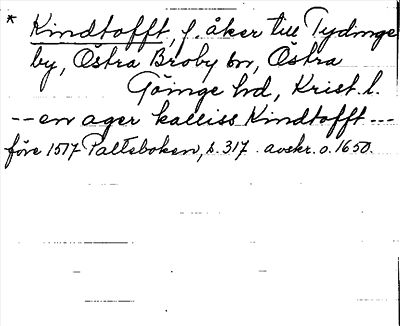 * Kindtofft, f. åker till Tydinge
by, Östra Broby sn, Östra
Göinge hd, Krist. l.
-- en ager kalliss Kindtofft ---
före 1517 Palteboken, s. 317. avskr. o. 1650.